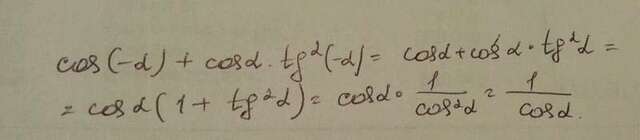 cos(-α) + cosα · tg²(-α) = cosα + cosα · tg²α =
= cosα(1 + tg²α) = cosα · 1/cos²α = 1/cosα.